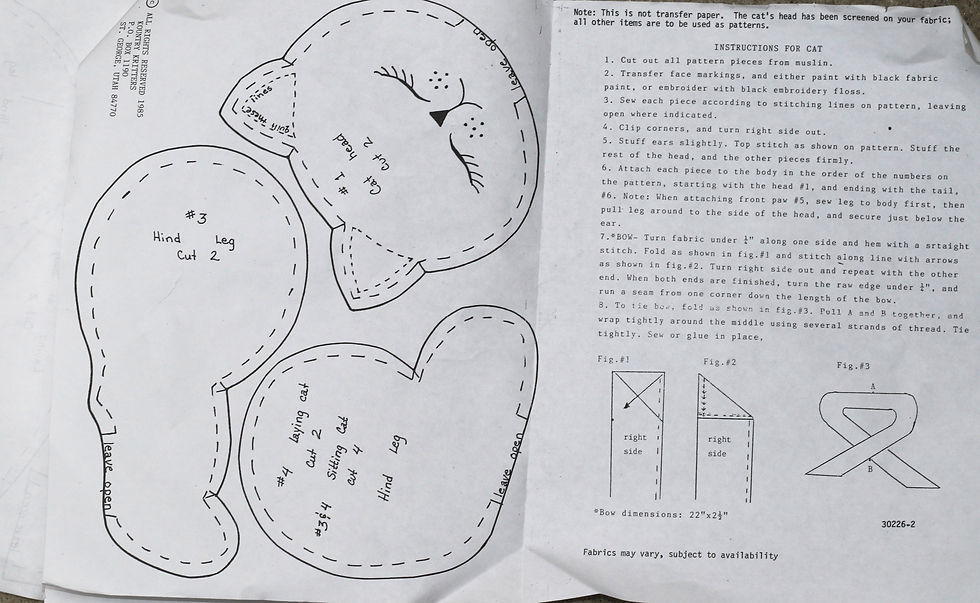 © ALL RIGHTS RESERVED 1985
KOUNTRY KRITTERS
P.O. BOX 1190
ST. GEORGE, UTAH 84770
leave open
quilt these lines
#1
Cat head
Cut 2
#3
Hind Leg
Cut 2
leave open
#4 laying cat
cut 2
#3&4 Sitting Cat
cut 4
Hind Leg
leave open
Note: This is not transfer paper. The cat's head has been screened on your fabric;
all other items are to be used as patterns.
INSTRUCTIONS FOR CAT
1. Cut out all pattern pieces from muslin.
2. Transfer face markings, and either paint with black fabric
paint, or embroider with black embroidery floss.
3. Sew each piece according to stitching lines on pattern, leaving
open where indicated.
4. Clip corners, and turn right side out.
5. Stuff ears slightly. Top stitch as shown on pattern. Stuff the
rest of the head, and the other pieces firmly.
6. Attach each piece to the body in the order of the numbers on
the pattern, starting with the head #1, and ending with the tail,
#6. Note: When attaching front paw #5, sew leg to body first, then
pull leg around to the side of the head, and secure just below the
ear.
7.*BOW- Turn fabric under ¼" along one side and hem with a srtaight
stitch. Fold as shown in fig.#1 and stitch along line with arrows
as shown in fig.#2. Turn right side out and repeat with the other
end. When both ends are finished, turn the raw edge under ¼", and
run a seam from one corner down the length of the bow.
8. To tie bow, fold as shown in fig.#3. Pull A and B together, and
wrap tightly around the middle using several strands of thread. Tie
tightly. Sew or glue in place,
Fig.#1
Fig.#2
Fig.#3
A
right
side
right
side
B
*Bow dimensions: 22"x2½"
30226-2
Fabrics may vary, subject to availability